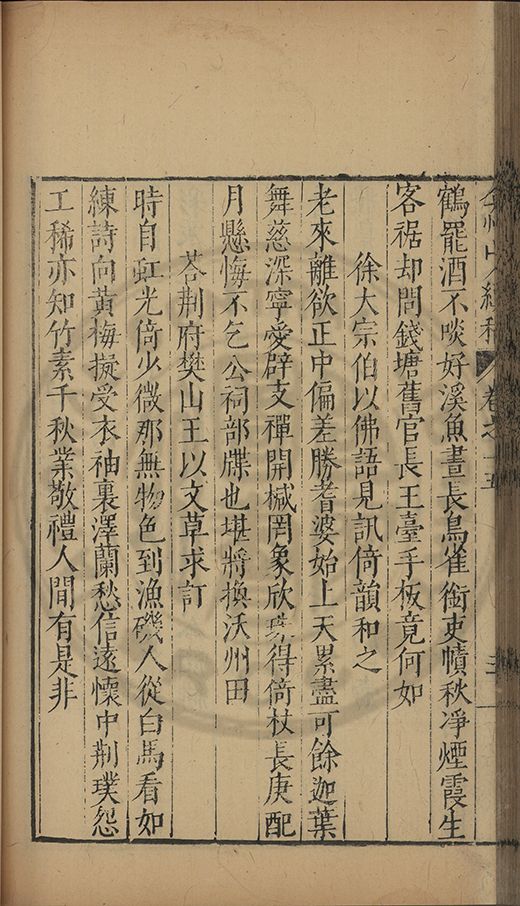 鶴罷酒不啖好溪魚晝長鳥雀銜吏幘秋淨煙霞生
客裾却問錢塘舊官長王臺手板竟何如
徐大宗伯以佛語見訊倚韻和之
老來離欲正中偏差勝耆婆始上天累盡可餘迦葉
舞慈深寧愛辟支禪開緘罔象欣珠得倚杖長庚配
月懸悔不乞公祠部牒也堪將換沃州田
荅荆府樊山王以文草求訂
時自虹光倚少微那無物色到漁磯人從白馬看如
練詩向黃梅擬受衣袖裏澤蘭愁信遠懷中荆璞怨
工稀亦知竹素千秋業敬禮人間有是非